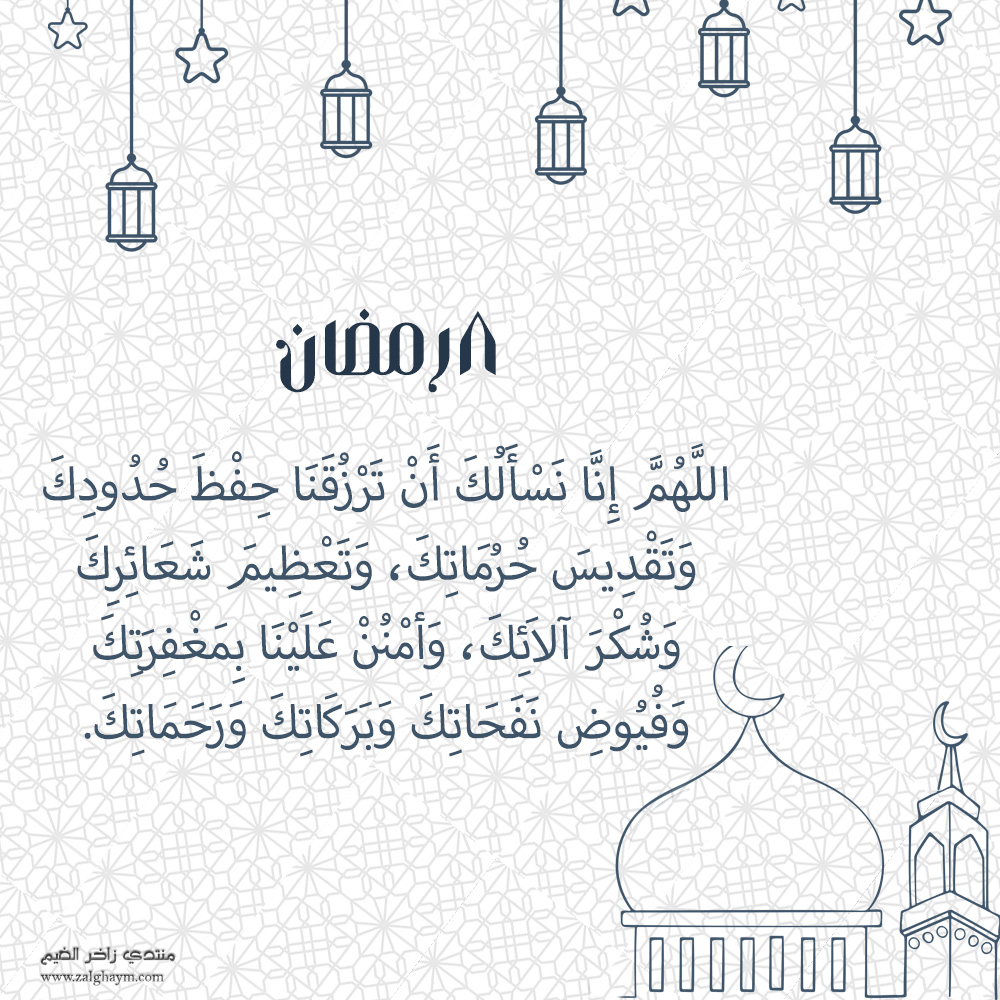 ٨ رمضان
اللَّهُمَّ إِنَّا نَسْأَلُكَ أَنْ تَرْزُقَنَا حِفْظَ حُدُودِكَ
وَتَقْدِيسَ حُرُمَاتِكَ، وَتَعْظِيمَ شَعَائِرِكَ
وَشُكْرَ آلاَئِكَ، وَأمْنُنْ عَلَيْنَا بِمَغْفِرَتِكَ
وَفُيُوضِ نَفَحَاتِكَ وَبَرَكَاتِكَ وَرَحَمَاتِكَ.
منتدي زاخر الغيم
www.zalghaym.com